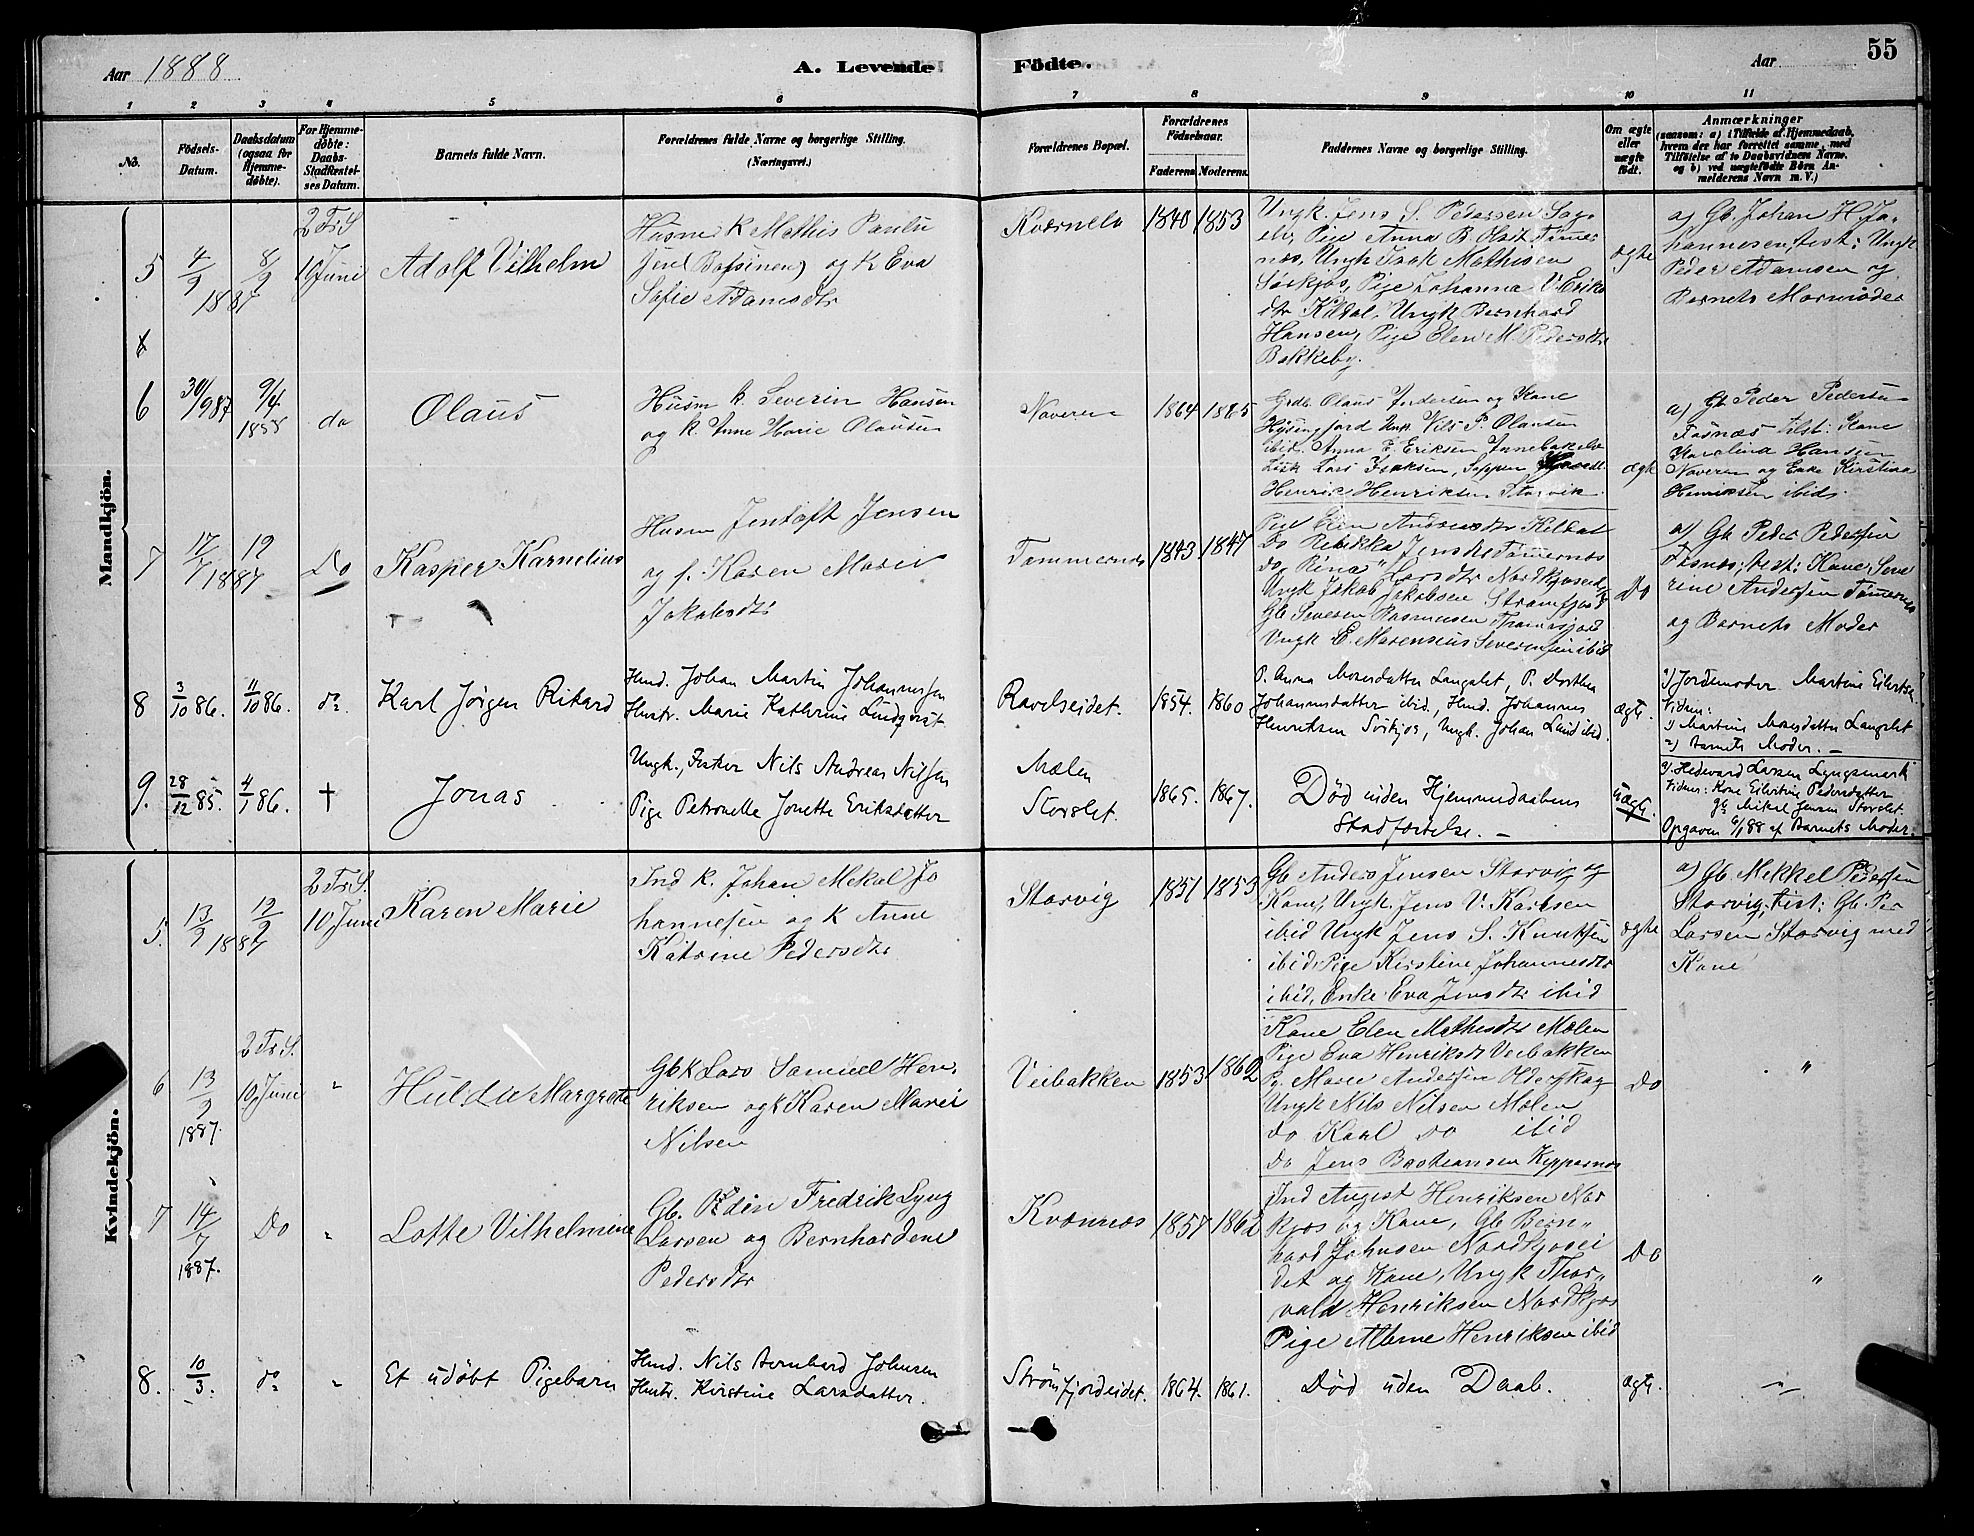 Aar 1888
A. Levende Födte.
Aar
55
1 2 3 4 5 6 7 8 9 10 11
No.
Födsels-
Datum.
Daabsdatum
(ogsaa for
Hjemme-
döbte).
For Hjemme-
döbte:
Daabs-
Stadfæstel-
ses Datum.
Barnets fulde Navn.
Forældrenes fulde Navne og borgerlige Stilling.
(Næringsvei.)
Forældrenes Bopæl.
Forældrenes
Födselsaar.
Faderens Moderens.
Faddernes Navne og borgerlige Stilling.
Om ægte
eller
uægte
födt.
Anmærkninger
(saasom: a) i Tilfælde af Hjemmedaab,
hvem der har forrettet samme, med
Tilföielse af to Daabsvidners Navne.
og b) ved uægtefödte Börn An-
melderens Navn m. V.)
Mandkjön.
5
4/9 8/9
1887
2 Tr S
10 Juni
Adolf Vilhelm
Husm k Mathis Paulu
og k Eva
Sofie Adamsdtr
1840 1853
Ungk. Jens S. Pedersen
elv, Pige Anna B. Olsdt
nes, Ungk Isak Mathisen
Sørkjos, Pige Johanna V. Eriks
dtr Kildal, Ungk Bernhard
Hansen, Pige Elen M. Pedersdtr
Bakkeby.
ægte
a) Gb. Johan H. Jo-
hannesen, test: Ungk
Peder Adamsen og
Barnets Mormoder
6
30/9 87
9/4
do
Olaus
Husm k. Severin Hansen
og k. Anne Marie Olausen
Naveren
1864
Olaus Andersen og Kone
Ungk. Nils P. Olausen
ibid. Anna E. Eriksen
Lars Isaksen,
Henrik Henriksen Storvik.
ægte
a) Gb Peder Pedersen
Tosnæs test: Kone
Karolina Hansen
Naveren og Enke Kirstina
Henriksen ibid.
7
17/7 19
1887
Do
Kasper Kornelius
Husm Jentoft Jensen
og h. Karen Marie
Jakobsdtr
Tømmernes
1843 1847
Pige Elen Andreasdtr Kildal
Do Rebikka Jensdtr Tømernes
do, Rina Larsdtr Nordkjoseid
Ungk Jakob Jakobsen Straumfjord
Gb Severin Rasmusen
Ungk E. Marensius Severinsen ibid
Do
a) Gb Peder Pedersen
Tosnæs, test: Kone Seve
rine Andersen Tømernes
og Barnets Moder
8
3/10 86. 11/10 86. do
Karl Jørgen Rikard
Hmd. Johan Martin Johannessen
Hustr. Marie Kathrine Lindqvist.
Ravelseidet.
1854. 1860
P. Anna Mosesdatter Langslet, P. Dorthea
Johannesdatter ibid., Hmd. Johannes
Henriksen Sørkjos, Ungk. Johan Lund ibid.
ægte.
a) Jordemoder Martine Eilertsen
Vidner:
1) Martine Mosesdatter Langslet
2) Barnets Moder. —
9.
28/12 85. 4/1 86. †
Jonas
Ungk., Fisker Nils Andreas Nilsen
Pige Petronelle Jonette Eriksdatter
Mælen
Storslet.
1865. 1867.
Død uden Hjemmedaabens
Stadfæstelse. —
uægte.
a) Hedevard Larsen Lyngsmark
Vidner: Kone Eilertine Pedersdatter
Gb Mikal Jensen Storslet.
Opgaven 6/1 88 af Barnets Moder.
Kvindekjön.
5.
13/9 19/9
1887
2 Tr S.
10 Juni
Karen Marie
Ind k. Johan Mekal Jo
hannesen og k Anne
Katrine Pedersdtr
Storvig
1851 1853
Gb Anders Jensen Storvig og
Kone, Ungk. Jens V. Karlsen
ibid Ungk Jens S. Knutsen
ibid, Pige Kirstine Johannesdtr
ibid, Enke Eva Jensdtr ibid
ægte
a) Gb. Mekkel Pedersen
Storvig, tist: Gb. Per
Larsen Storvig med
Kone
6
13/9
1887.
2 Tr S.
10 Juni
"
Hulda Margrete
Gbk Lars Samuel Hen,
riksen og k Karen Marei
Nilsen
Veibakken
1853 1862
Kone Elen Mathisdtr Mælen
Pige Eva Henriksdt Veibakken
Pg. Marie Andersen Olderskog
Ungk Nils Nilsen Mælen
do Karl Do ibid
Do Jens Bastiansen Kippernes
Do
"
7
14/7
1887.
Do
"
Lotte Vilhelmine
Gb. Odin Fredrik Lyng
Larsen og Bernhardene
Pedersdtr
Kvænnes
1857 1862
Ind August Henriksen Nor
kjos og Kone, Gb Bern"
hard Johnsen Nordkjosei
det og Kone, Ungk Thor"
vald Henriksen Nordkjos
Pige Albine Henriksen ibid
Do
"
8.
10/3. do "
Et udøbt Pigebarn
Hmd. Nils Bernhard Johnsen
Hustr. Kirstine Larsdatter.
Strømfjordeidet.
1864. 1861.
Død uden Daab.
ægte.
"